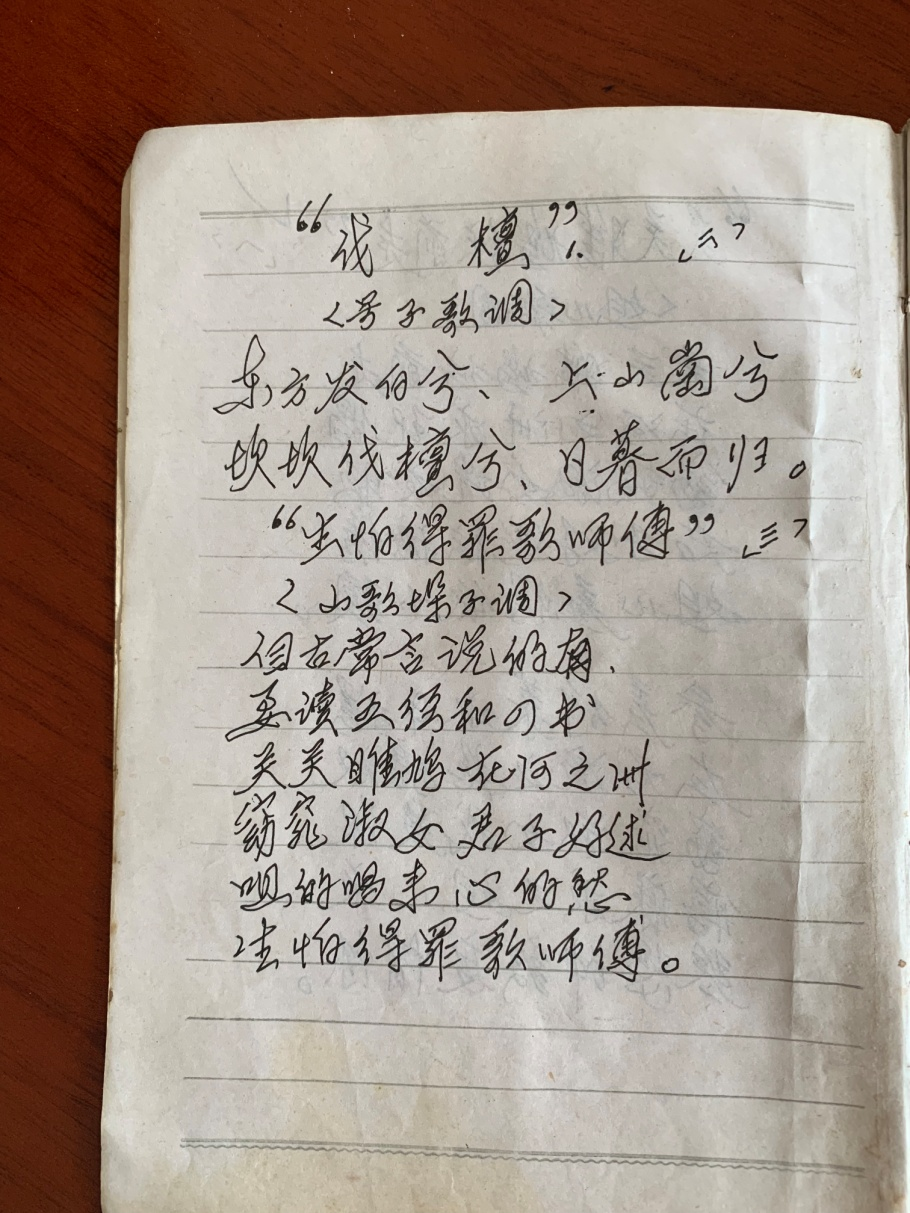 “伐 檀”. 〈二〉
〈号子歌调〉
东方发白兮、上山岗兮
坎坎伐檀兮、日暮而归。
“生怕得罪歌师傅” 〈三〉
〈山歌垛子调〉
自古常言说的有、
要读五经和四书
关关雎鸠在河之洲
窈窕淑女君子好逑
咀的唱来心的愁
生怕得罪歌师傅。